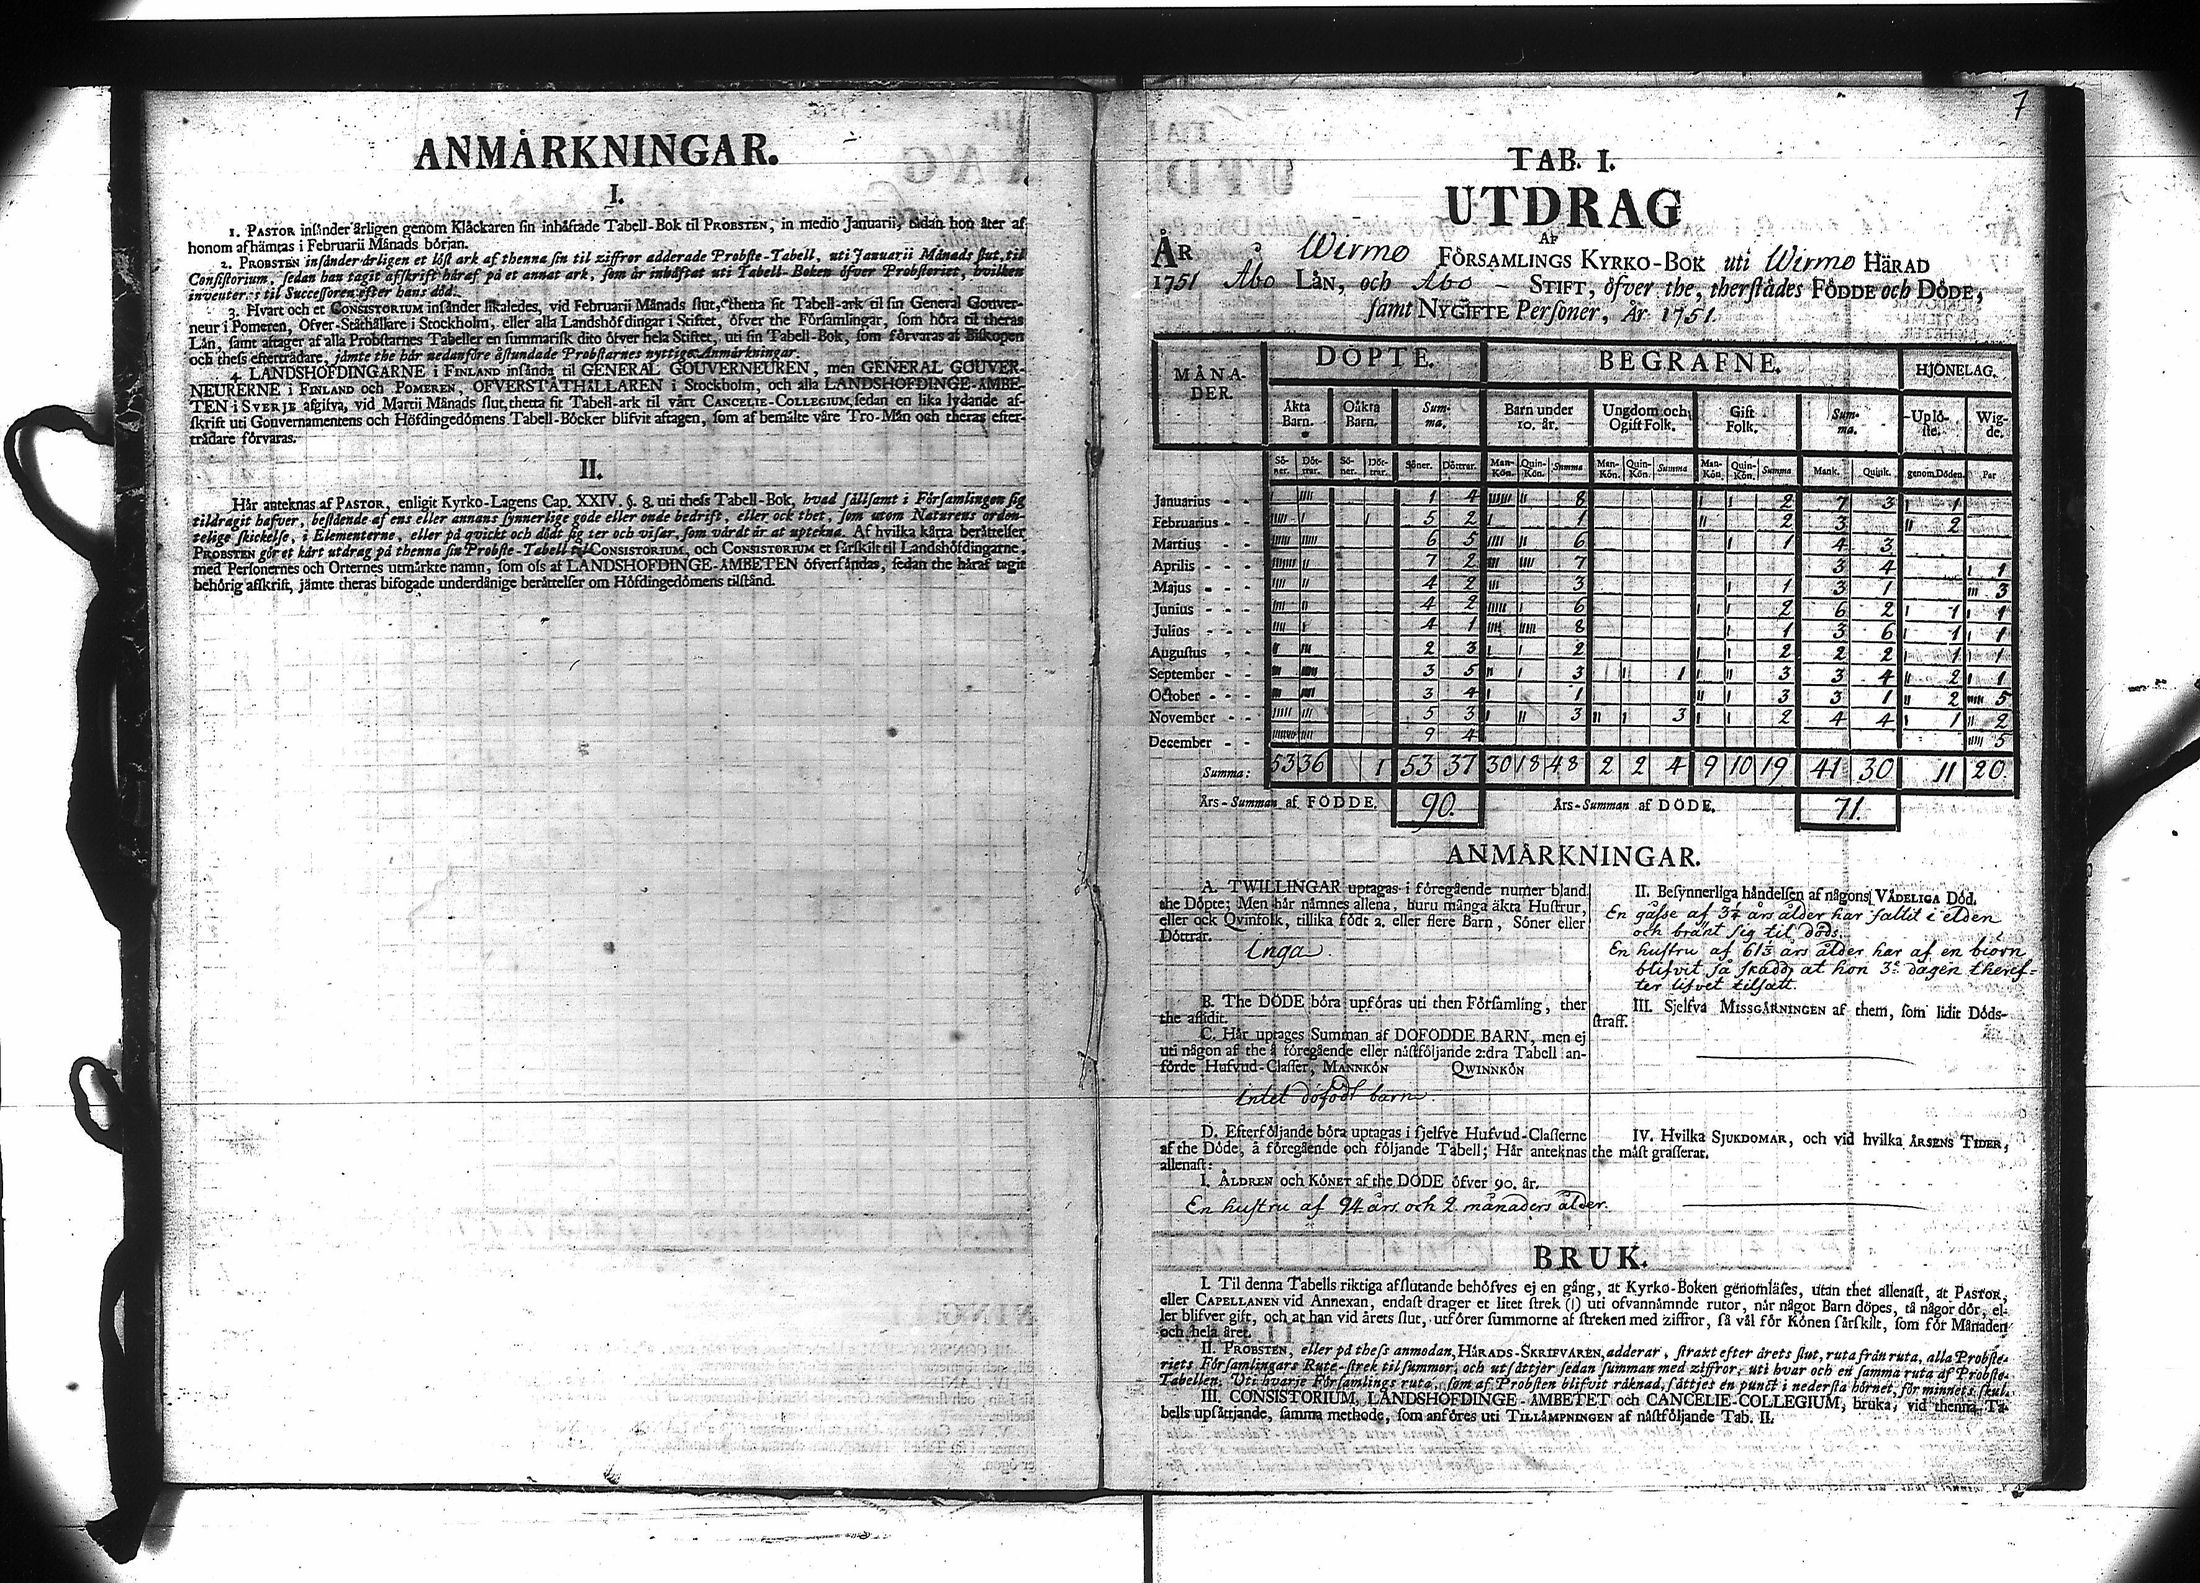 ANMÄRKNINGAR.
I.
1. PASTOR insänder årligen genom Klåckaren sin inhäftade Tabell-Bok til PROBSTEN, in medio Januarii, sidan hon åter af
honom afhämtas i Februarii Månads början.
2. PROBSTEN insänder årligen et löst ark af thenna sin til ziffror adderade Probste-Tabell, uti Januarii Månads slut, til
Consistorium, sedan han tagit afskrift häraf på et annat ark, som är inhäftat uti Tabell-Boken öfver Probsteriet, hvilken
inventeras til Successoren efter hans död.
3. Hvart och et CONSISTORIUM insänder likaledes, vid Februarii Månads slut, thetta sit Tabell-ark til sin General Gouver-
neur i Pomeren, Öfver-Ståthållare i Stockholm, eller alla Landshöfdingar i Stiftet, öfver the Församlingar, som höra til theras
Län, samt aftager af alla Probstarnes Tabeller en summarisk dito öfver hela Stiftet, uti sin Tabell-Bok, som förvaras af Biskopen
och thess efterträdare, jämte the här nedanföre åstundade Probstarnes nyttige Anmärkningar.
4. LANDSHÖFDINGARNE i FINLAND insända til GENERAL GOUVERNEUREN, men GENERAL GOUVER-
NEURERNE i FINLAND och POMEREN, ÖFVERSTÅTHÅLLAREN i Stockholm, och alla LANDSHÖFDINGE-ÄMBE-
TEN i SVERJE afgifva, vid Martii Månads slut, thetta sit Tabell-ark til vårt CANCELIE-COLLEGIUM, sedan en lika lydande af-
skrift uti Gouvernamentens och Höfdingedömens Tabell-Böcker blifvit aftagen, som af bemälte våre Tro-Män och theras efter-
trädare förvaras.
II.
Här anteknas af PASTOR, enligit Kyrko-Lagens Cap. XXIV. §. 8. uti thess Tabell-Bok, hvad sällsamt i Församlingen sig
tildragit hafver, bestående af ens eller annans synnerlige gode eller onde bedrift, eller ock thet, som utom Naturens orden-
telige skickelse, i Elementerne, eller på qvickt och dödt sig ter och visar, som värdt är at uptekna. Af hvilka kårta berättelser
PROBSTEN gör et kårt utdrag på thenna sin Probste-Tabell til CONSISTORIUM, och CONSISTORIUM et särskilt til Landshöfdingarne,
med Personernes och Orternes utmärkte namn, som oss af LANDSHÖFDINGE-ÄMBETEN öfversändas, sedan the häraf tagit
behörig afskrift, jämte theras bifogade underdånige berättelser om Höfdingedömens tilstånd.
7
TAB. I.
UTDRAG
AF
ÅR Wirmo FÖRSAMLINGS KYRKO-BOK uti Wirmo HÄRAD
1751 Åbo LÄN, och Åbo - STIFT, öfver the, therstädes FÖDDE och DÖDE,
samt NYGIFTE Personer, År 1751.
MÅNA-DER. DÖPTE. BEGRAFNE. HJONELAG.
Äkta Barn. Oäkta Barn. Sum-ma. Barn under 10. år. Ungdom och Ogift Folk. Gift Folk. Sum-ma. Uplö-ste. Wig-de.
Sö-ner. Döt-trar. Sö-ner. Döt-trar. Söner. Döttrar. Man-Kön. Quin-Kön. Summa Man-Kön. Quin-Kön. Summa Man-Kön. Quin-Kön. Summa Mank. Quink. genom Döden. Par
Januarius - - 1 4 8 2 7 3 1
Februarius - - 5 2 1 2 3 2
Martius - - 6 5 6 1 4 3
Aprilis - - - 7 2 7 3 4 1
Majus - - - 4 2 3 1 3 1 3
Junius - - - 4 2 6 2 6 2 1 1
Julius - - - 4 1 8 1 3 6 1 1
Augustus - - 2 3 2 2 2 2 1 1
September - - 3 5 3 1 3 3 4 2 1
October - - - 3 4 1 3 3 1 2 5
November - - 5 3 3 3 2 4 4 1 2
December - - 9 4 5
Summa: 53 36 1 53 37 30 18 48 2 2 4 9 10 19 41 30 11 20.
Års-Summan af FÖDDE. 90. Års-Summan af DÖDE. 71.
ANMÄRKNINGAR.
A. TWILLINGAR uptagas i föregående numer bland
the Döpte; Men här nämnes allena, huru många äkta Hustrur,
eller ock Qvinfolk, tillika födt 2. eller flere Barn, Söner eller
Döttrar.
Inga.
B. The DÖDE böra upföras uti then Församling, ther
the aflidit.
C. Här uptages Summan af DÖFÖDDE BARN, men ej
uti någon af the å föregående eller nästföljande 2:dra Tabell an-
förde Hufvud-Classer, MANNKÖN QWINNKÖN
Intet döfödt barn.
D. Efterföljande böra uptagas i sjelfve Hufvud-Classerne
af the Döde, å föregående och följande Tabell; Här anteknas
allenast:
I. ÅLDREN och KÖNET af the DÖDE öfver 90. år.
En hustru af 94 års och 2 månaders ålder.
II. Besynnerliga händelsen af någons VÅDELIGA DÖD.
En gåsse af 3 1/4 års ålder har fallit i elden
och bränt sig til döds.
En hustru af 61 1/2 års ålder har af en biörn
blifvit så skadd, at hon 3e dagen theref-
ter lifvet tilsatt.
III. Sjelfva MISSGÄRNINGEN af them, som lidit Döds-
straff.
IV. Hvilka SJUKDOMAR, och vid hvilka ÅRSENS TIDER,
the mäst grasserat.
BRUK.
I. Til denna Tabells riktiga afslutande behöfves ej en gång, at Kyrko-Boken genomläses, utan thet allenast, at PASTOR,
eller CAPELLANEN vid Annexan, endast drager et litet strek (I) uti ofvannämnde rutor, när något Barn döpes, tå någor dör, el-
ler blifver gift, och at han vid årets slut, utförer summorne af streken med ziffror, så väl för Könen särskilt, som för Månaden
och hela året.
II. PROBSTEN, eller på thess anmodan, HÄRADS-SKRIFVAREN, adderar, straxt efter årets slut, ruta från ruta, alla Probste-
riets Församlingars Rute-strek til summor, och utsättjer sedan summan med ziffror, uti hvar och en samma ruta af Probste-
Tabellen. Uti hvarje Församlings ruta, som af Probsten blifvit räknad, sättjes en punct i nedersta hörnet, för minnets skul.
III. CONSISTORIUM, LANDSHÖFDINGE-ÄMBETET och CANCELIE-COLLEGIUM, bruka, vid thenna Ta-
bells upsättjande, samma methode, som anföres uti TILLÄMPNINGEN af nästföljande Tab. II.